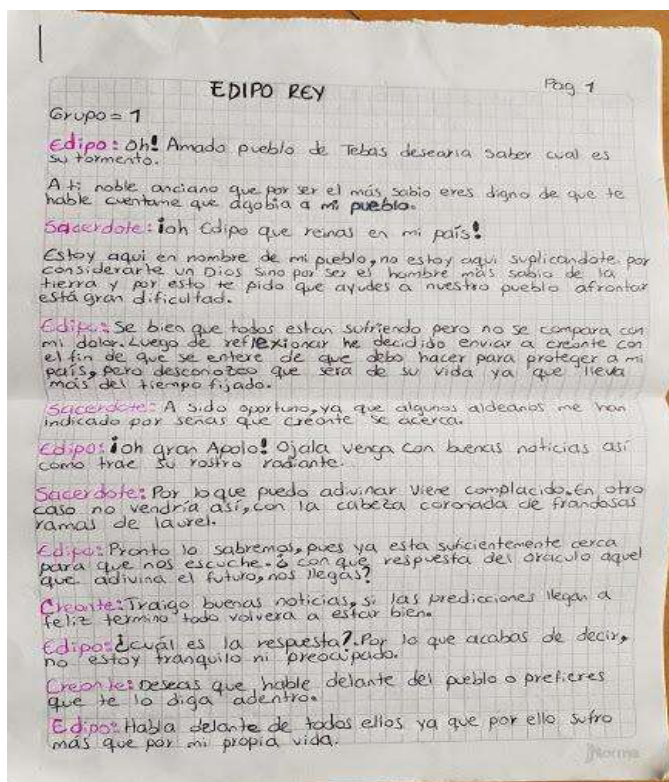 EDIPO REY
Pag 1
Grupo = 1
Edipo: Oh! Amado pueblo de Tebas desearia saber cual es
su tormento.
A ti noble anciano que por ser el más sabio eres digno de que te
hable cuentame que agobia a mi pueblo.
Sacerdote: ¡oh Edipo que reinas en mi país!
Estoy aqui en nombre de mi pueblo, no estoy aqui suplicandote por
considerarte un Dios sino por ser el hombre más sabio de la
tierra y por esto te pido que ayudes a nuestro pueblo afrontar
está gran dificultad.
Edipo: Se bien que todos estan sufriendo pero no se compara con
mi dolor. Luego de reflexionar he decidido enviar a creonte con
el fin de que se entere de que debo hacer para proteger a mi
país, pero desconozco que sera de su vida ya que lleva
más del tiempo fijado.
Sacerdote: A sido oportuno, ya que algunos aldeanos me han
indicado por señas que creonte se acerca.
Edipo: ¡oh gran Apolo! Ojala venga con buenas noticias así
como trae su rostro radiante.
Sacerdote: Por lo que puedo adivinar viene complacido. En otro
caso no vendría así, con la cabeza coronada de frandosas
ramas de laurel.
Edipo: Pronto lo sabremos, pues ya esta suficientemente cerca
para que nos escuche. ¿con que respuesta del oráculo aquel
que adivina el futuro, nos llegas?
Creonte: Traigo buenas noticias, si las predicciones llegan a
feliz termino todo volvera a estar bien.
Edipo: ¿cuál es la respuesta?. Por lo que acabas de decir,
no estoy tranquilo ni preocupado.
Creonte: Deseas que hable delante del pueblo o prefieres
que te lo diga adentro.
Edipo: Habla delante de todos ellos ya que por ello sufro
más que por mi propia vida.
Norma